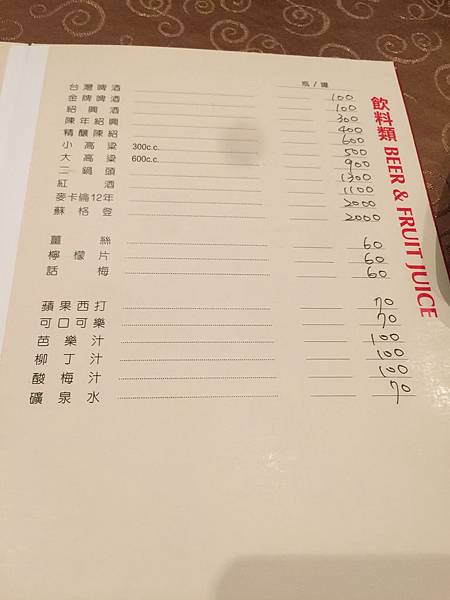 飲料類 BEER & FRUIT JUICE
瓶/罐
台灣啤酒 100
金牌啤酒 100
紹興酒 300
陳年紹興 400
精釀陳紹 600
小高粱 300c.c. 500
大高粱 600c.c. 900
二鍋頭 1300
紅酒 1100
麥卡倫12年 2000
蘇格登 2000
薑絲 60
檸檬片 60
話梅 60
蘋果西打 70
可口可樂 70
芭樂汁 100
柳丁汁 100
酸梅汁 100
礦泉水 70